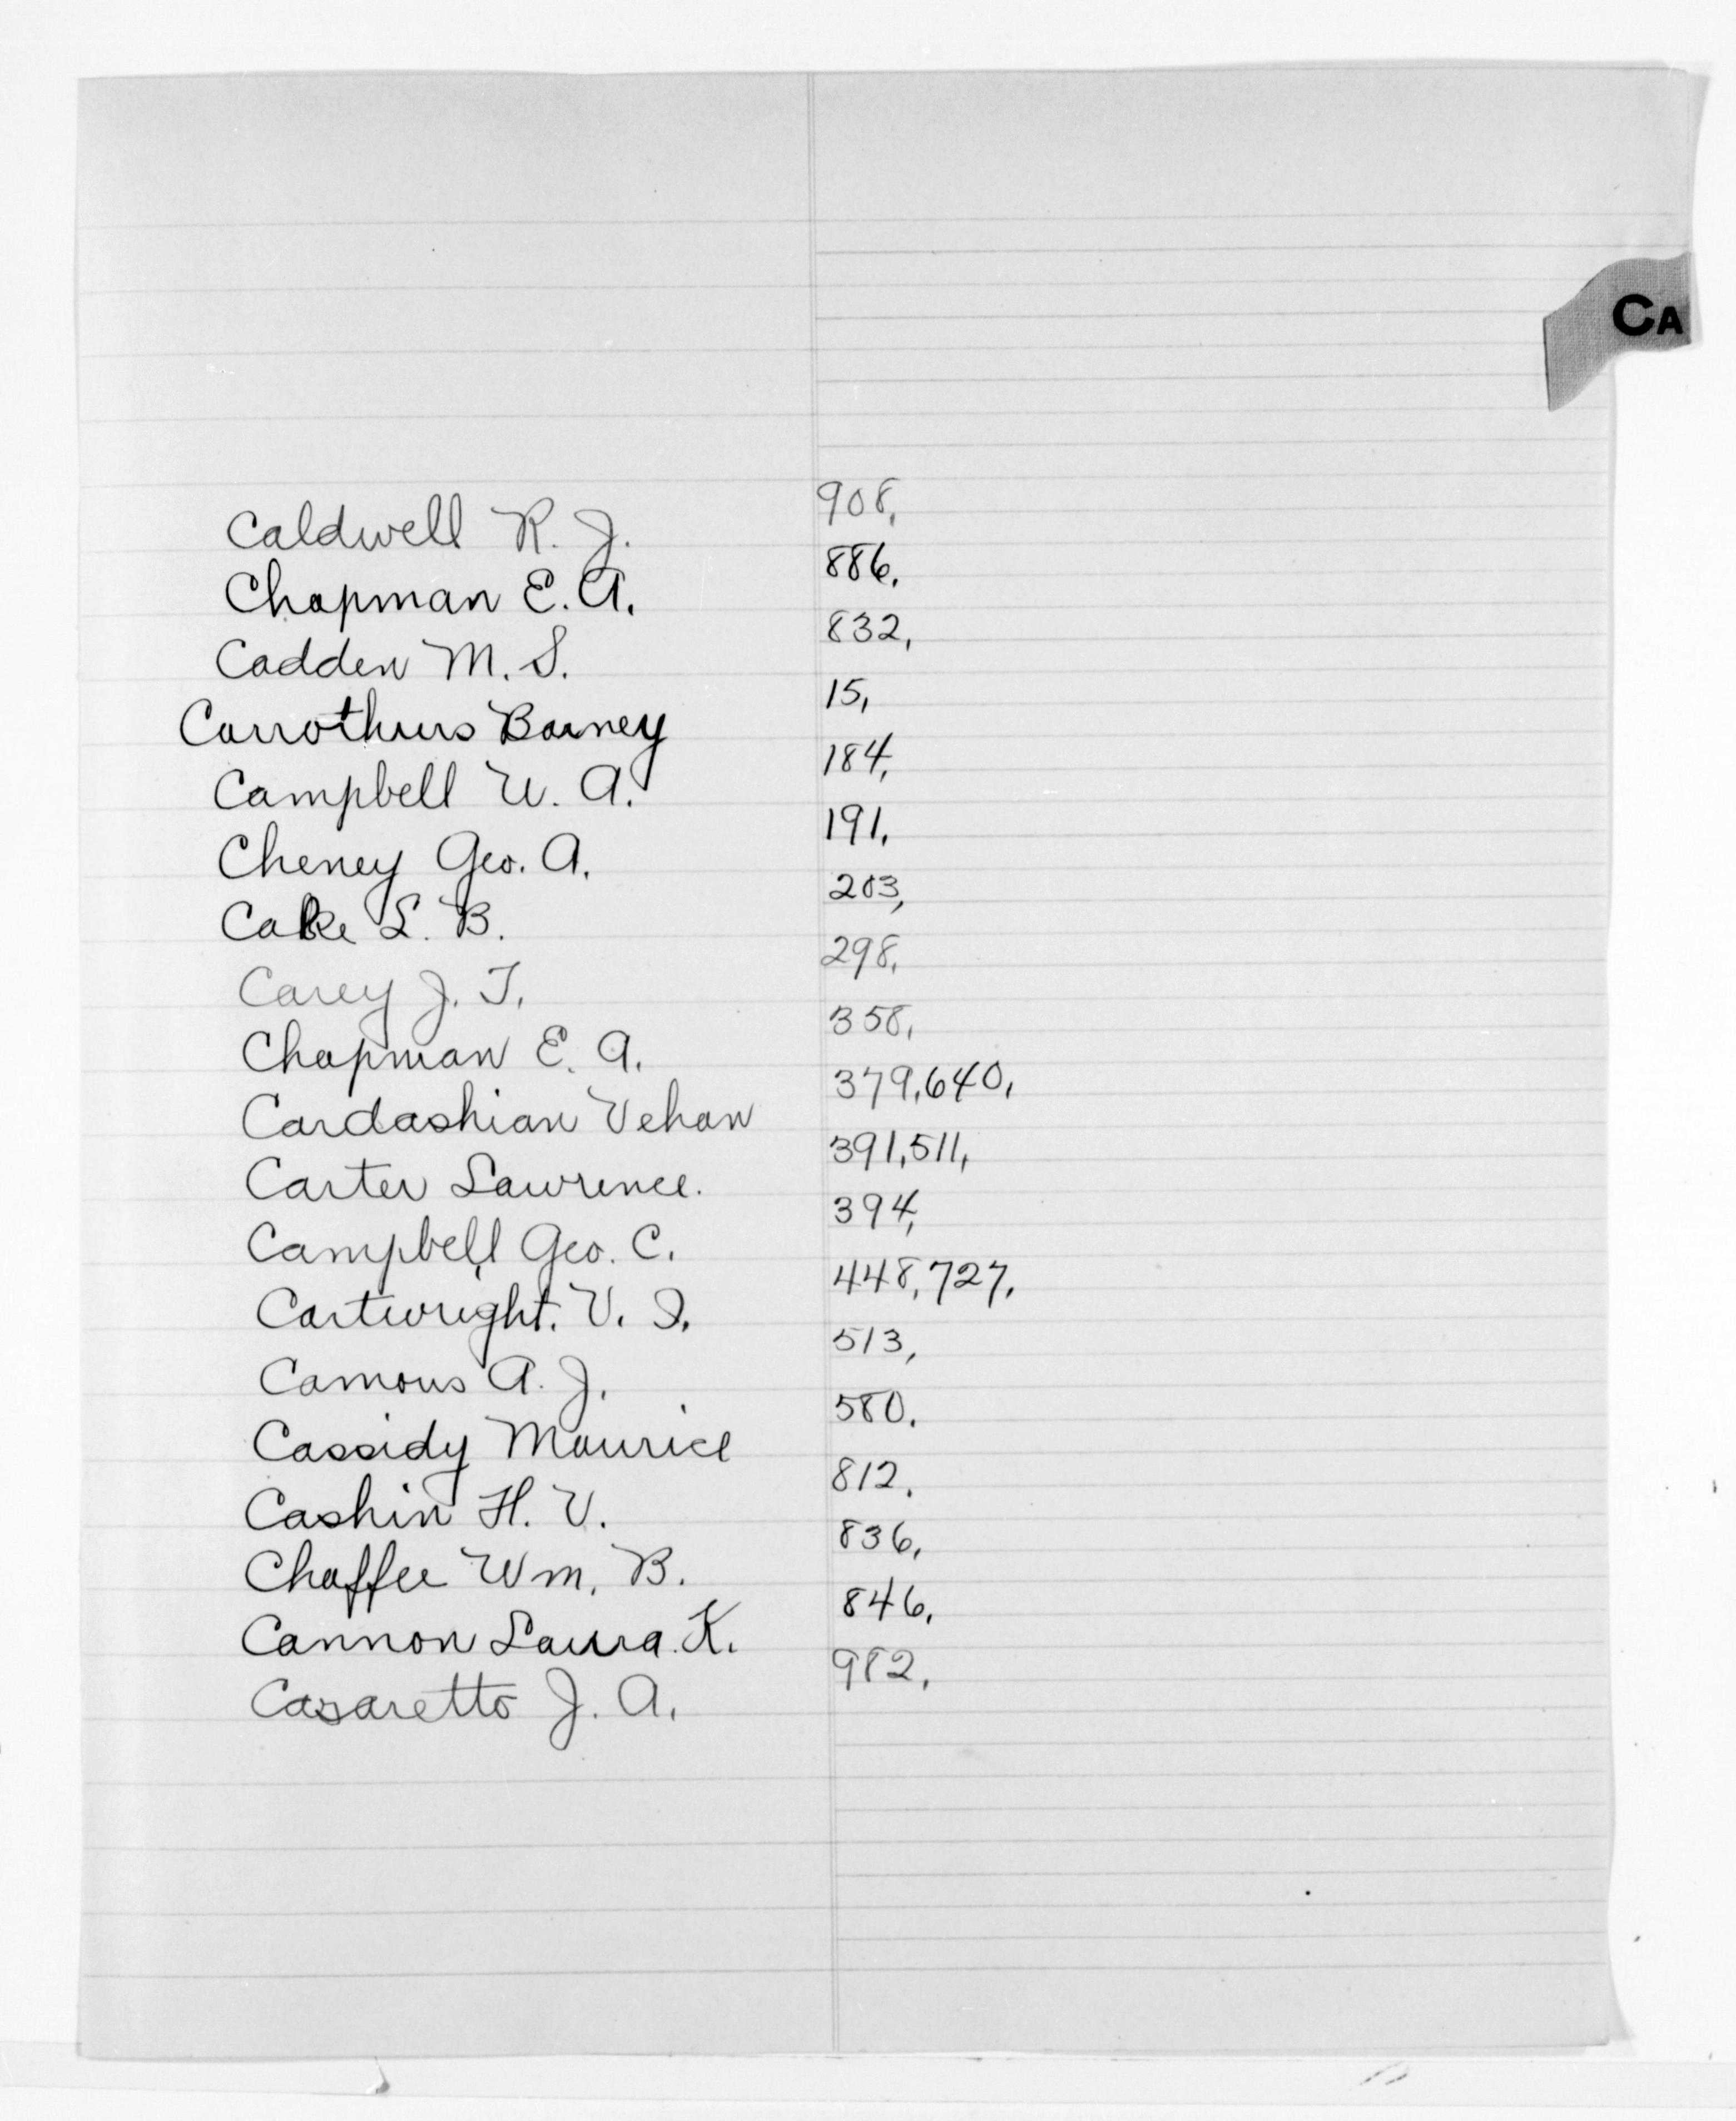 CA
Caldwell R. J. 908,
Chapman E. A. 886,
Cadden M. S. 832,
Carrothers Barney 15,
Campbell W. A. 184,
Cheney Geo. A. 191,
Cake L. B. 203,
Carey J. T. 298,
Chapman E. A. 358,
Cardashian Vehan 379,640,
Carter Lawrence. 391,511,
Campbell Geo. C. 394,
Cartwright. V. I. 448,727,
Camous A. J. 513,
Cassidy Maurice 580.
Cashin H. V. 812.
Chaffee Wm. B. 836,
Cannon Laura K. 846,
Casaretto J. A. 982,